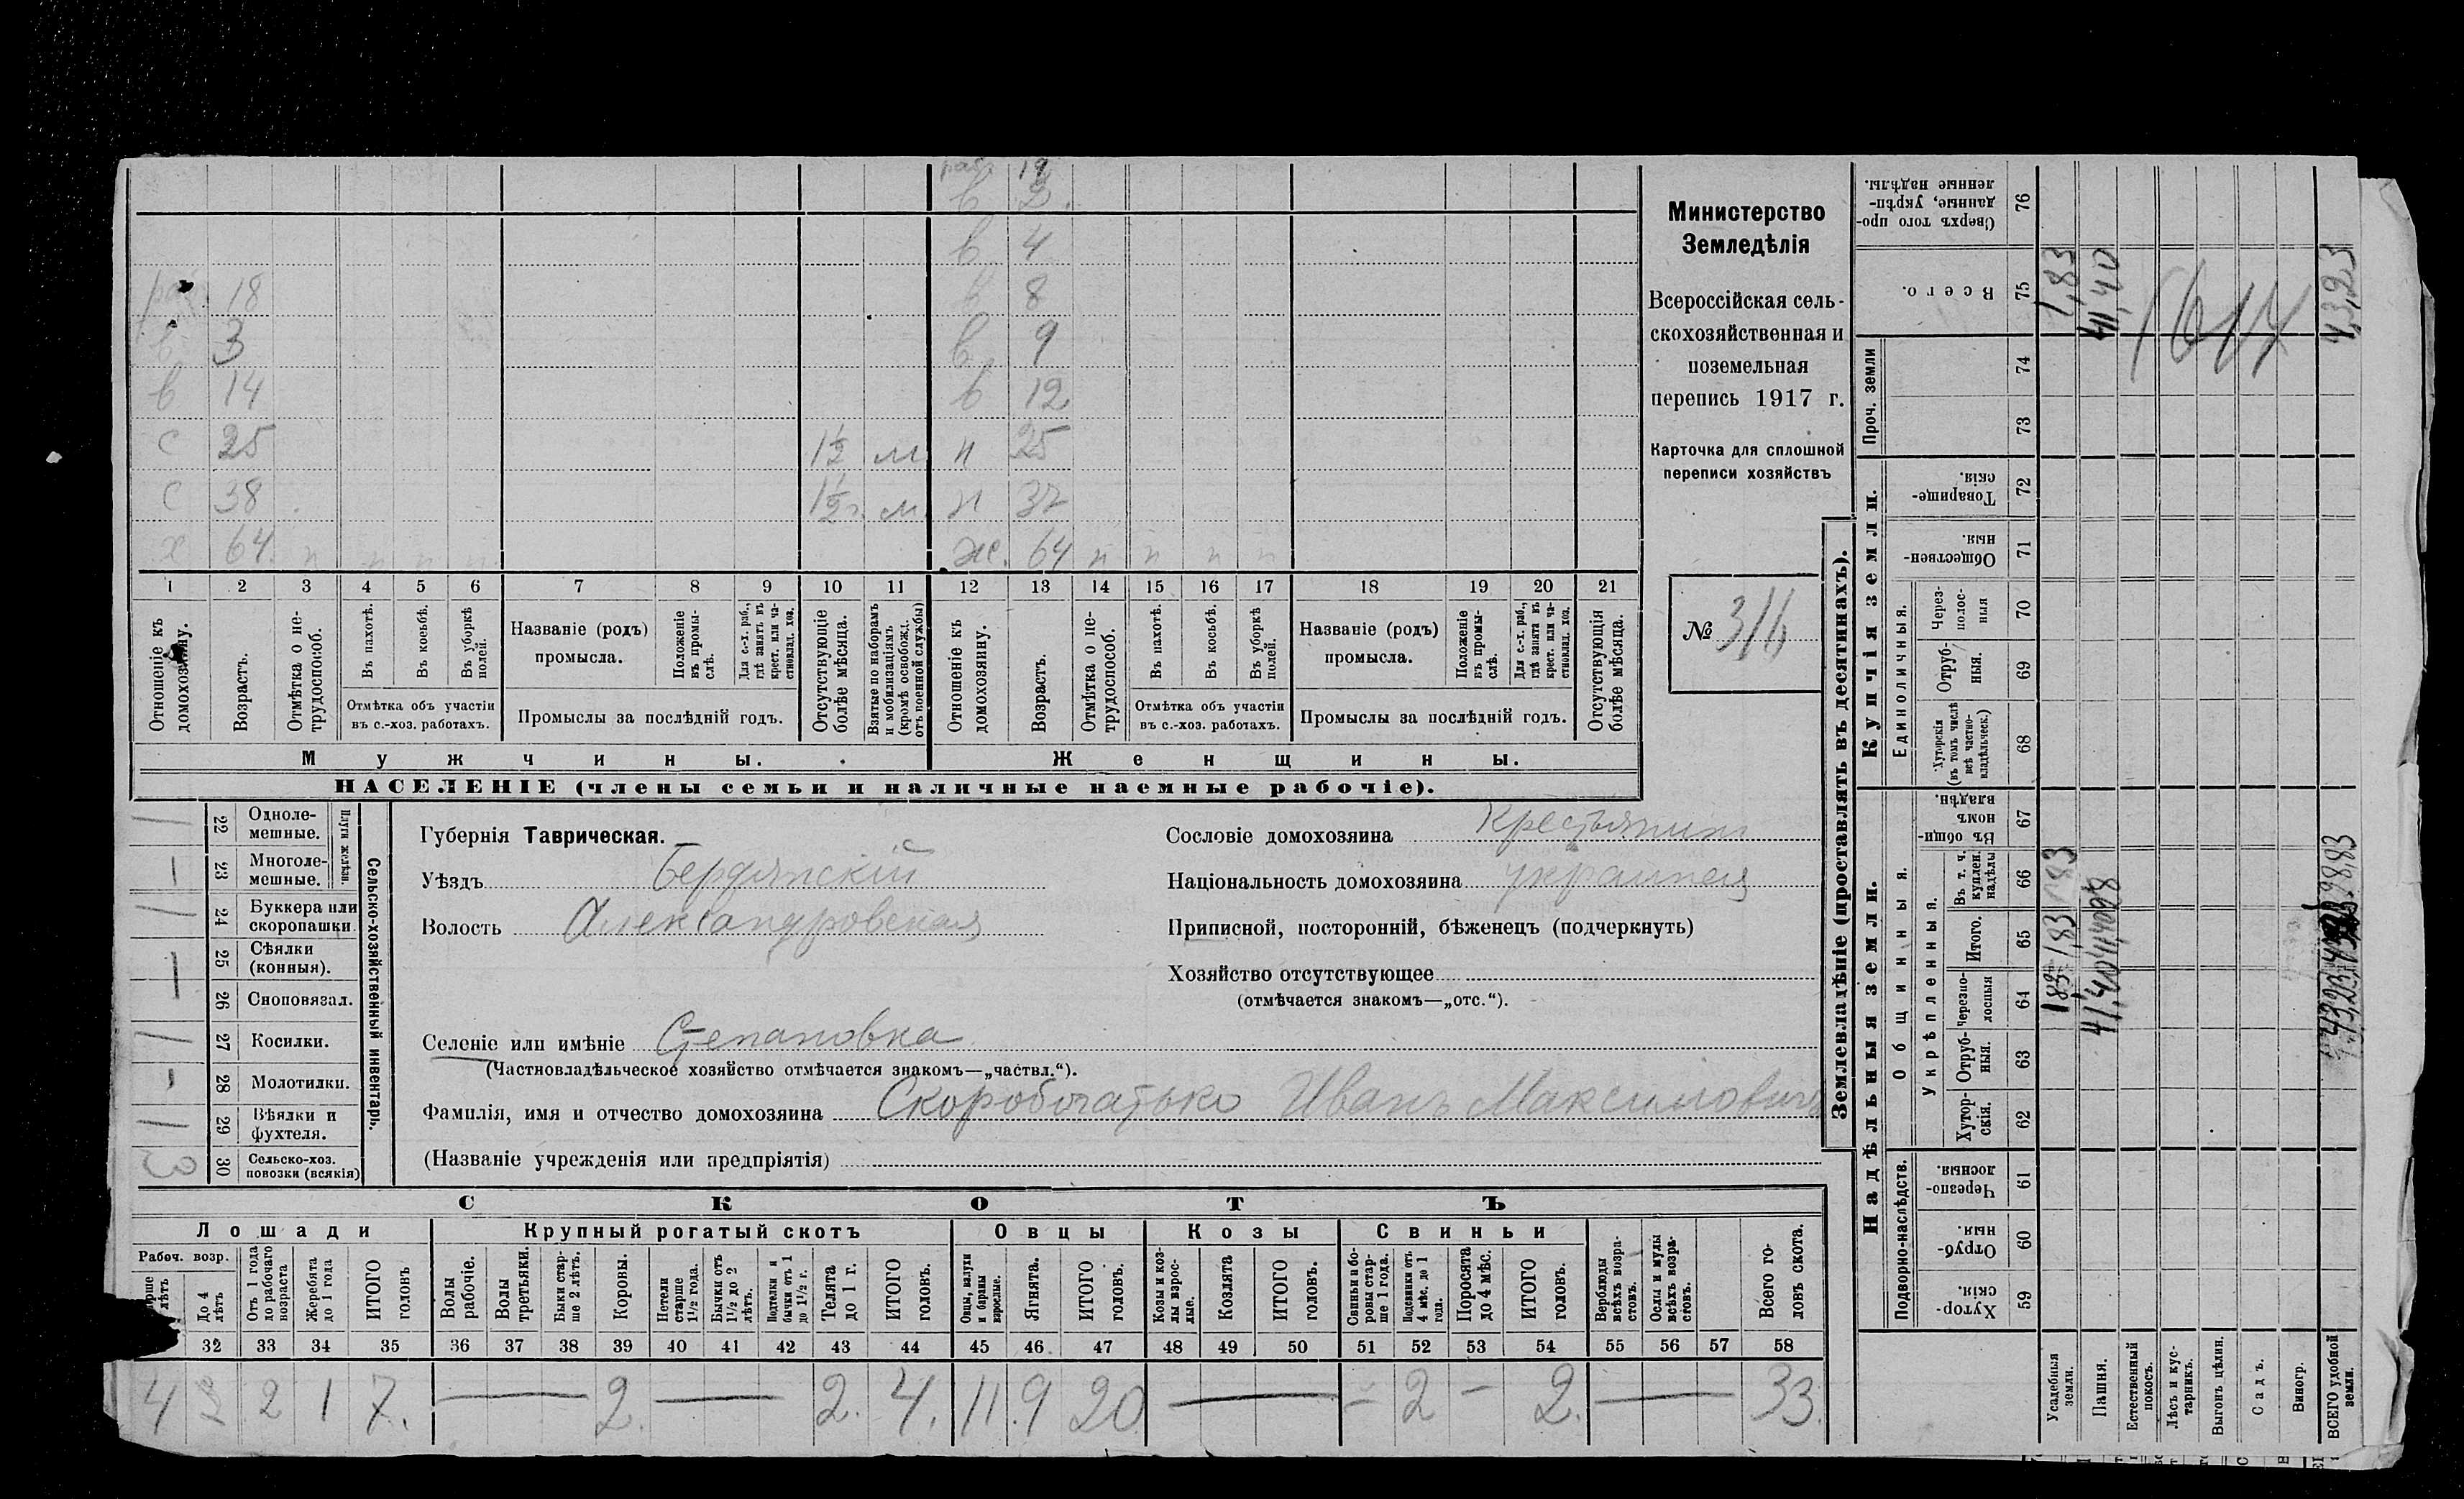 раб. 19
в 2.
в 4
раб. 18 в 8
в 3 в 9
в 14 в 12
с 25 1½ м н 25
с 38 1½ г. м. н 37
х 64 п п п п ж. 64 п п п п
1 2 3 4 5 6 7 8 9 10 11 12 13 14 15 16 17 18 19 20 21
Отношеніе къ домохозяину.
Возрастъ.
Отмѣтка о нетрудоспособ.
Въ пахотѣ.
Въ косьбѣ.
Въ уборкѣ полей.
Отмѣтка объ участіи
въ с.-хоз. работахъ.
Названіе (родъ)
промысла.
Положеніе въ промыслѣ.
Для с.-х. раб., гдѣ занятъ въ крест. или частновлад. хоз.
Промыслы за послѣдній годъ.
Отсутствующіе болѣе мѣсяца.
Взятые по наборамъ и мобилизаціямъ (кромѣ освобожд. отъ военной службы)
Отношеніе къ домохозяину.
Возрастъ.
Отмѣтка о нетрудоспособ.
Въ пахотѣ.
Въ косьбѣ.
Въ уборкѣ полей.
Отмѣтка объ участіи
въ с.-хоз. работахъ.
Названіе (родъ)
промысла.
Положеніе въ промыслѣ.
Для с.-х. раб., гдѣ занята въ крест. или частновлад. хоз.
Промыслы за послѣдній годъ.
Отсутствующія болѣе мѣсяца.
Мужчины. Женщины.
НАСЕЛЕНІЕ (члены семьи и наличные наемные рабочіе).
Министерство
Земледѣлія
Всероссійская сель-
скохозяйственная и
поземельная
перепись 1917 г.
Карточка для сплошной
переписи хозяйствъ
№ 316
Сельско-хозяйственный инвентарь.
Плуги желѣзн.
22 Одноле-
мешные.
23 Многоле-
мешные.
24 Буккера или
скоропашки
25 Сѣялки
(конныя).
26 Сноповязал.
27 Косилки.
28 Молотилки.
29 Вѣялки и
фухтеля.
30 Сельско-хоз.
повозки (всякія)
3
Губернія Таврическая.
Уѣздъ Бердянскій
Волость Александровская
Селеніе или имѣніе Степановка
(Частновладѣльческое хозяйство отмѣчается знакомъ—„частвл.“).
Фамилія, имя и отчество домохозяина Скоробогатько Иванъ Максимовичъ
(Названіе учрежденія или предпріятія)
Сословіе домохозяина Крестьянин
Національность домохозяина украинец
Приписной, посторонній, бѣженецъ (подчеркнуть)
Хозяйство отсутствующее
(отмѣчается знакомъ—„отс.“).
СКОТЪ
Лошади Крупный рогатый скотъ Овцы Козы Свиньи
Рабоч. возр.
До 4 лѣтъ
Отъ 1 года до рабочаго возраста
Жеребята до 1 года
ИТОГО головъ
Волы рабочіе.
Волы третьяки.
Быки старше 2 лѣтъ.
Коровы.
Нетели старше 1½ года.
Бычки отъ 1½ до 2 лѣтъ.
Подтелки и бычки отъ 1 до 1½ г.
Телята до 1 г.
ИТОГО головъ.
Овцы, валухи и бараны взрослые.
Ягнята.
ИТОГО головъ.
Козы и козлы взрослые.
Козлята
ИТОГО головъ.
Свиньи и боровы старше 1 года.
Подсвинки отъ 4 мѣс. до 1 года.
Поросята до 4 мѣс.
ИТОГО головъ.
Верблюды всѣхъ возрастовъ.
Ослы и мулы всѣхъ возрастовъ.
Всего головъ скота.
32 33 34 35 36 37 38 39 40 41 42 43 44 45 46 47 48 49 50 51 52 53 54 55 56 57 58
4 2 2 1 7. — 2. — 2. 4. 11. 9 20 — - 2 - 2. — 33.
Землевладѣніе (проставлять въ десятинахъ).
Надѣльныя земли. Купчія земли. Проч. земли
Подворно-наслѣдств.
Общинныя.
Укрѣпленныя.
Единоличныя.
59 Хуторскія.
60 Отрубныя.
61 Черезполосныя.
62 Хуторскія.
63 Отрубныя.
64 Черезполосныя
65 Итого.
66 Въ т. ч. куплен. надѣлы
67 Въ общинномъ владѣн.
68 Хуторскія (въ томъ числѣ всѣ частновладѣльческ.)
69 Отрубныя.
70 Черезполосныя
71 Общественныя.
72 Товарищескія.
73
74
75 Всего.
76 Сверхъ того проданные, укрѣпленные надѣлы.
Усадебныя земли. 1,83 1,83
Пашня. 41,40 41,40
Естественный покосъ.
Лѣсъ и кустарникъ.
Выгонъ цѣлин.
Садъ.
Виногр.
ВСЕГО удобной земли. 43,23